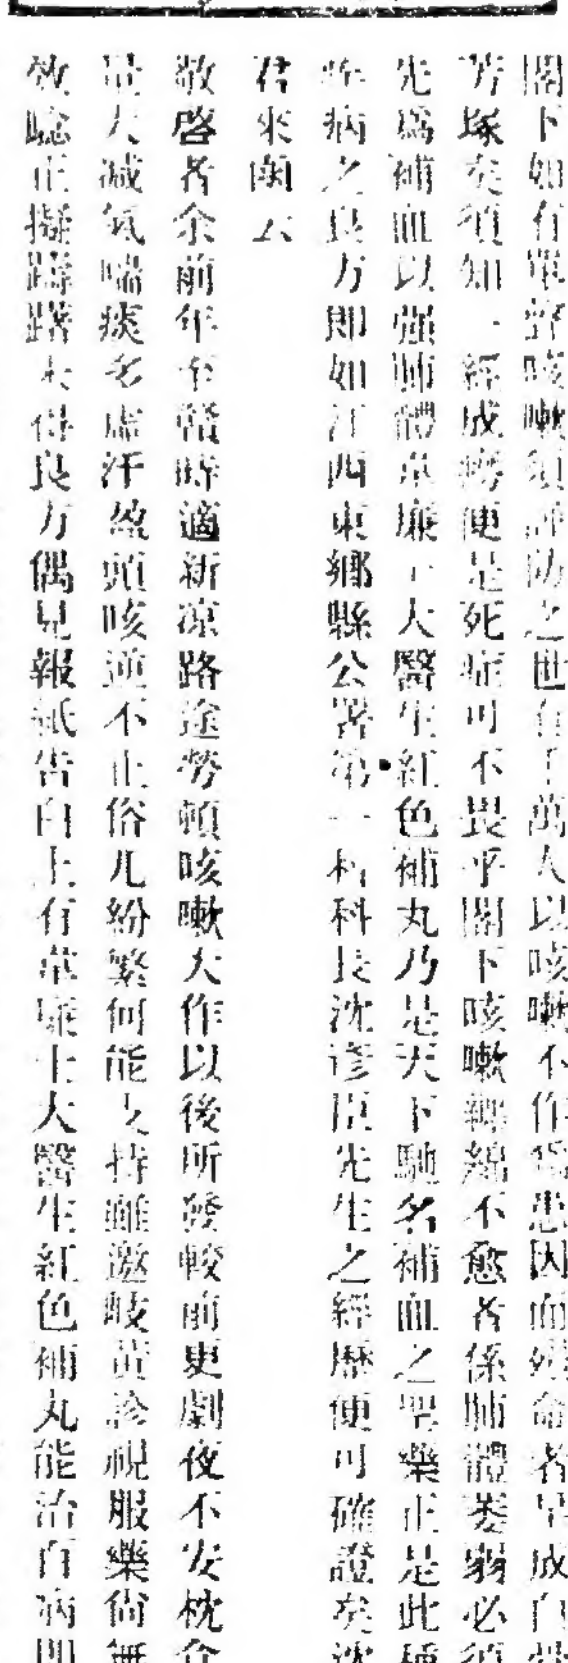 閣下如有單聲咳嗽須謹防之世有千萬人以咳嗽不作爲患因而殞命者早成白骨
芳塚矣須知一經成癆便是死症可不畏乎閣下咳嗽綿不愈者係肺體萎弱必須
先爲補血以强肺體韋廉士大醫生紅色補丸乃是天下馳名補血之聖藥正是此種
疾病之良方即如江西東鄉縣公署第一科科長沈先生之經歷便可確證矣沈
君來函云
敬啓者余前年至贛時適新凉路途勞頓咳嗽大作以後所發較前更劇夜不安枕食
量大减氣喘痰多虛汗盈頭咳逆不止俗凡紛繁何能支持雖邀岐黃診視服藥尙無
效驗正擬躊躇未得良方偶見報紙告白上有韋廉士大醫生紅色補丸能治百病即